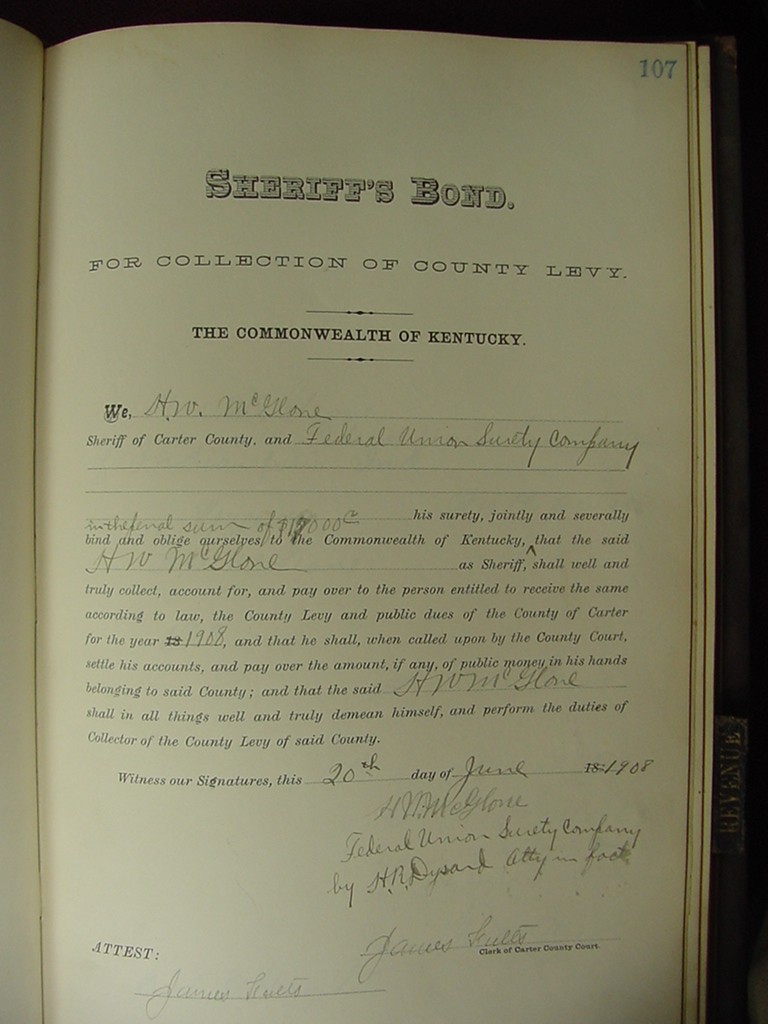 107
SHERIFF'S BOND.
FOR COLLECTION OF COUNTY LEVY.
THE COMMONWEALTH OF KENTUCKY.
We, H.W. McGlone
Sheriff of Carter County, and Federal Union Surety Company
in the penal sum of $12000 his surety, jointly and severally
bind and oblige ourselves, to the Commonwealth of Kentucky, that the said
H W McGlone as Sheriff, shall well and
truly collect, account for, and pay over to the person entitled to receive the same
according to law, the County Levy and public dues of the County of Carter
for the year 18 1908, and that he shall, when called upon by the County Court,
settle his accounts, and pay over the amount, if any, of public money in his hands
belonging to said County; and that the said H W McGlone
shall in all things well and truly demean himself, and perform the duties of
Collector of the County Levy of said County.
Witness our Signatures, this 20th day of June 18 1908
H W McGlone
Federal Union Surety Company
by H.R. Dysard Atty in fact
ATTEST:
James
Clerk of Carter County Court.
James
REVENUE